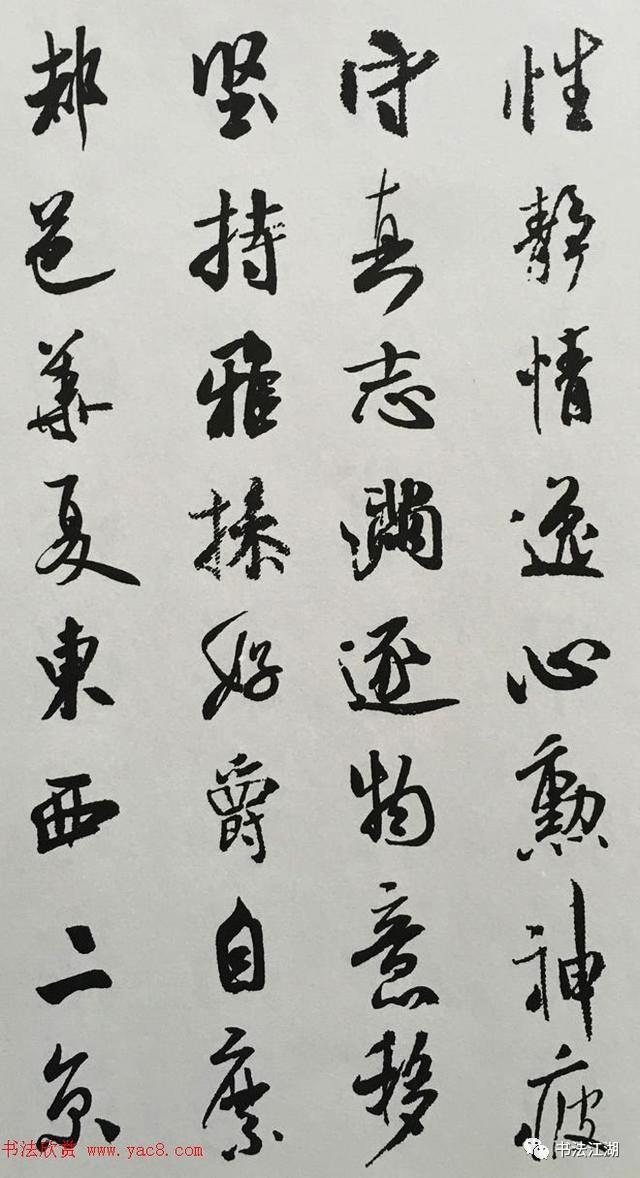 性靜情逸心勲神疲
守真志滿逐物意移
堅持雅操好爵自縻
都邑華夏東西二京
书法欣赏 www.yac8.com
书法江湖